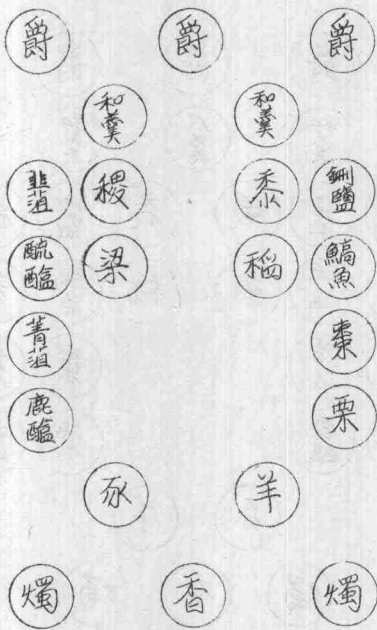 爵 爵 爵
和羹 和羹
韭菹 稷 黍 鉶鹽
醓醢 梁 稻 鱐魚
菁菹 棗
鹿醢 栗
豕 羊
燭 香 燭